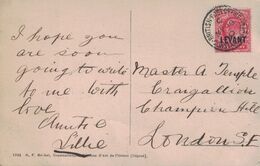 I hope you
are soon
going to write
to me with
love
Auntie
Lillie
Master A Temple
Craigallion
Champion Hill
London S.E
LEVANT